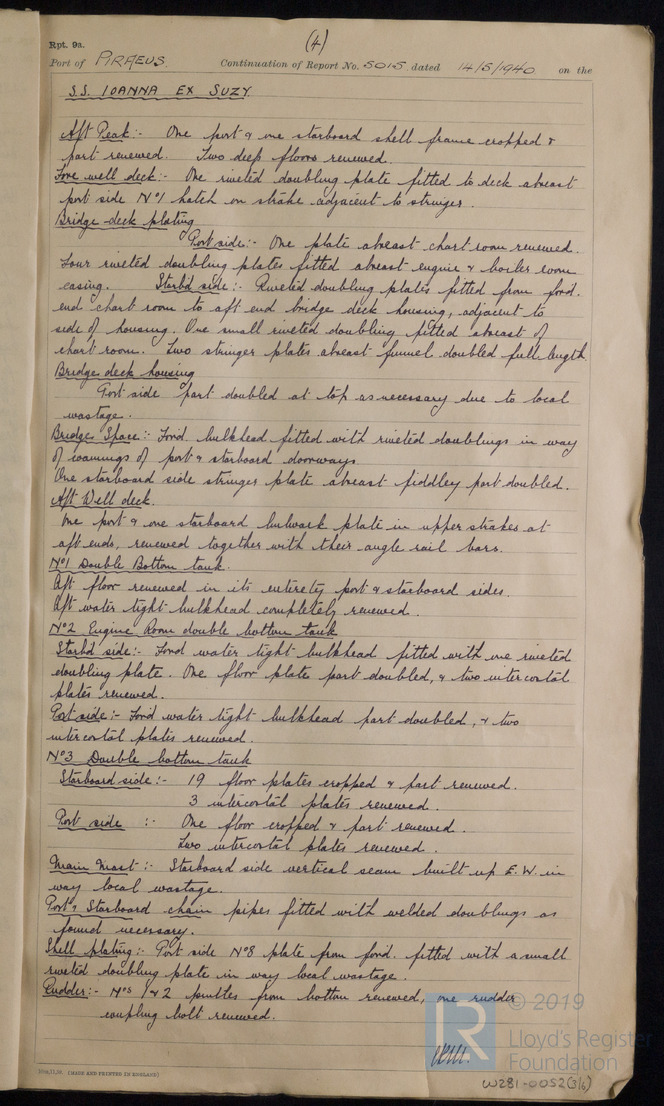 Rpt. 9a.
(4)
Port of PIRAEUS Continuation of Report No. 5015 dated 14/5/1940 on the
S.S. IOANNA EX SUZY
Aft Peak:- One port & one starboard shell frame cropped &
part renewed. Two deep floors renewed.
Fore well deck:- One riveted doubling plate fitted to deck abreast
port side No1 hatch on strake adjacent to stringer.
Bridge deck plating
Port side:- One plate abreast chart room renewed.
Four riveted doubling plates fitted abreast engine & boiler room
casing. Starbd side:- Riveted doubling plates fitted from ford.
end chart room to aft end bridge deck housing, adjacent to
side of housing. One small riveted doubling fitted abreast of
chart room. Two stringer plates abreast funnel doubled full length
Bridge deck housing
Port side part doubled at top as necessary due to local
wastage.
Bridge Space:- Ford bulkhead fitted with riveted doublings in way
of coamings of port & starboard doorways.
One starboard side stringer plate abreast fiddley part doubled.
Aft Well deck.
One port & one starboard bulwark plate in upper strakes at
aft ends, renewed together with their angle rail bars.
No1 Double Bottom tank.
Aft floor renewed in its entirety port & starboard sides.
Aft water tight bulkhead completely renewed.
No2 Engine Room double bottom tank
Starbd side:- Ford water tight bulkhead fitted with one riveted
doubling plate. One floor plate part doubled, & two intercostal
plates renewed.
Port side:- Ford water tight bulkhead part doubled, & two
intercostal plates renewed.
No3 Double bottom tank
Starboard side:- 19 floor plates cropped & part renewed.
3 intercostal plates renewed.
Port side :- One floor cropped & part renewed.
Two intercostal plates renewed.
Main Mast:- Starboard side vertical seam built up E.W. in
way local wastage.
Port & Starboard chain pipes fitted with welded doublings as
found necessary.
Shell plating:- Port side No8 plate from ford. fitted with a small
riveted doubling plate in way local wastage.
Rudder:- Nos 1 & 2 pintles from bottom renewed, one rudder
coupling bolt renewed.
(MADE AND PRINTED IN ENGLAND)
LR
© 2019
Lloyd's Register
Foundation
W281-0052(3/6)